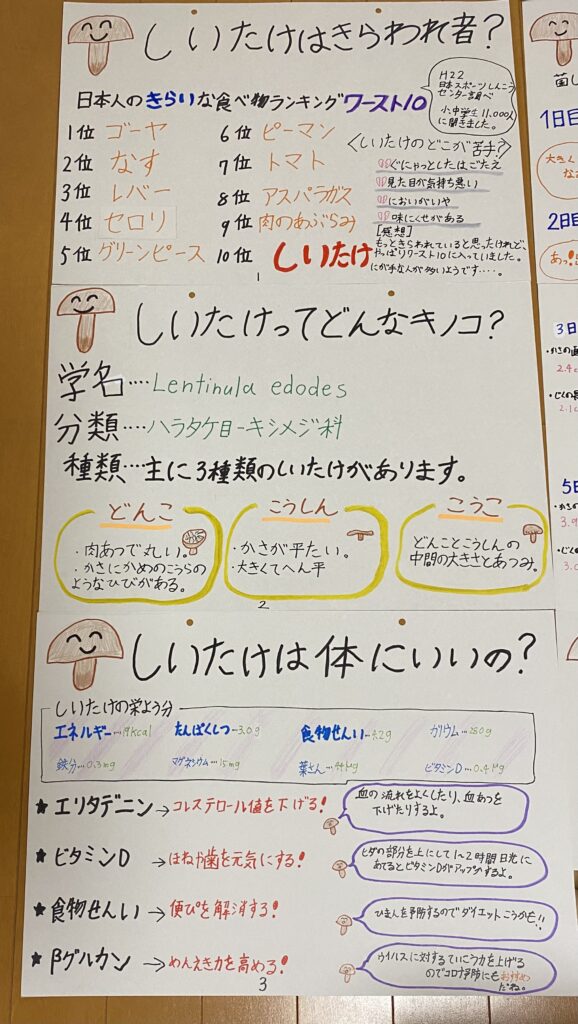 しいたけはきらわれ者?
H22
日本スポーツしんこう
センター調べ
小、中学生11,000人
に聞きました。
日本人のきらいな食べ物ランキングワースト10
1位 ゴーヤ
2位 なす
3位 レバー
4位 セロリ
5位 グリーンピース
6位 ピーマン
7位 トマト
8位 アスパラガス
9位 肉のあぶらみ
10位 しいたけ
<しいたけのどこが苦手?>
ぐにゃっとしたはごたえ
見た目が気持ち悪い
においがいや
味にくせがある
[感想]
もっときらわれていると思ったけれど、
やっぱりワースト10に入っていました。
にが手な人が多いようです・・・・。
1
しいたけってどんなキノコ?
学名・・・・Lentinula edodes
分類・・・・ハラタケ目ーキシメジ科
種類・・・主に3種類のしいたけがあります。
どんこ
・肉あつで丸い。
・かさにかめのこうらの
ようなひびがある。
こうしん
・かさが平たい。
・大きくてへん平
こうこ
どんことこうしんの
中間の大きさとあつみ。
2
しいたけは体にいいの?
しいたけの栄よう分
エネルギー・・・19kcal たんぱくしつ・・3.0g 食物せんい・・4.2g カリウム・・・280g
鉄分・・・0.3mg マグネシウム・・・15mg 葉さん・・44μg ビタミンD・・0.4μg
★エリタデニン→コレステロール値を下げる!
血の流れをよくしたり、血あつを
下げたりするよ。
★ビタミンD→ほねや歯を元気にする!
ヒダの部分を上にして1〜2時間日光に
あてるとビタミンDがアップするよ。
★食物せんい→便ぴを解消する!
ひまんを予防するのでダイエットこうかも!!
★βグルカン→めんえき力を高める!
ウイルスに対するていこう力を上げる
のでコロナ予防にもおすすめ
だね。
3
1日目
大きく
2日目
あっ!
3日
・かさの直
2.4c
・じくの長
2.1c
5日
・かさの
3.9
・じくの
3.0